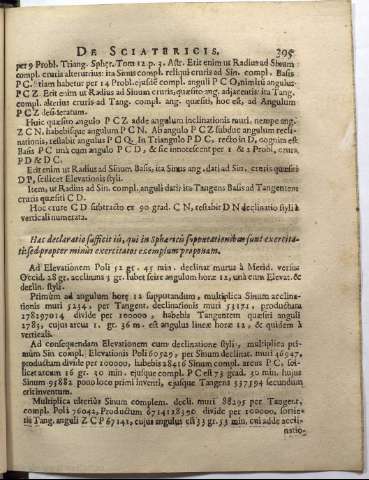 DE SCIATERICIS. 395
per 9 Probl. Triang. Sphęr. Tom 12 p. 3. Astr. Erit enim ut Radius ad Sinum
compl. cruris alterutrius: ita Sinus compl. reliqui cruris ad Sin. compl. Basis
PC. etiam habetur per 14 Probl. ejusdē compl. anguli PCO, nimirū angulus
PCZ. Erit enim ut Radius ad Sinum cruris, quæsito ang. adjacentis: ita Tang.
compl. alterius cruris ad Tang. compl. ang. quæsiti, hoc est, ad Angulum
PCZ desideratum.
Huic quæsito angulo PCZ adde angulum inclinationis muri, nempe ang.
ZCN, habebisque angulum PCN. Ab angulo PCZ subduc angulum recli-
nationis, restabit angulus PCQ. In Triangulo PDC, recto in D, cognita est
Basis PC una cum angulo PCD, & sic innotescent per 1 & 2 Probl. crura
PD & DC.
Erit enim ut Radius ad Sinum Basis, ita Sinus ang. dati ad Sin. cruris quæsiti
DP, scilicet Elevationis styli.
Item, ut Radius ad Sin. compl. anguli dati: ita Tangens Basis ad Tangentem
cruris quæsiti CD.
Hoc crure CD subtracto ex 90 grad. CN, restabit DN declinatio styli à
verticali numerata.
Hæc declaratio sufficit iis, qui in Sphæricis supputationibus sunt exercita-
ti: sed propter minus exercitatos exemplum proponam.
Ad Elevationem Poli 52 gr. 45 min. declinat murus à Merid. versus
Occid. 28 gr. acclinans 3 gr. lubet scire angulum horæ 12, unà cum Elevat. &
declin. styli.
Primùm ad angulum horę 12 supputandum, multiplica Sinum acclina-
tionis muri 5234, per Tangent. declinationis muri 53171, productum
278297014 divide per 100000, habebis Tangentem quæsiti anguli
2783, cujus arcus 1. gr. 36 m. est angulus lineæ horæ 12, & quidem à
verticali.
Ad consequendam Elevationem cum declinatione styli, multiplica pri-
mùm Sin compl. Elevationis Poli 60529, per Sinum declinat. muri 46947,
productum divide per 100000, habebis 28416 Sinum compl. arcus PC, sci-
licet arcum 16 gr. 30 min. ejusque compl. PC est 73 grad. 30 min. hujus
Sinum 95882 pono loco primi inventi, ejusque Tangens 337594 secundum
erit inventum.
Multiplica ulteriùs Sinum complem. decli. muri 88295 per Tangent.
compl. Poli 76042, Productum 6714128390 divide per 100000, sortie-
ris Tang. anguli ZCP 67141, cujus angulus est 33 gr. 53 min. cui adde accli-
natio-